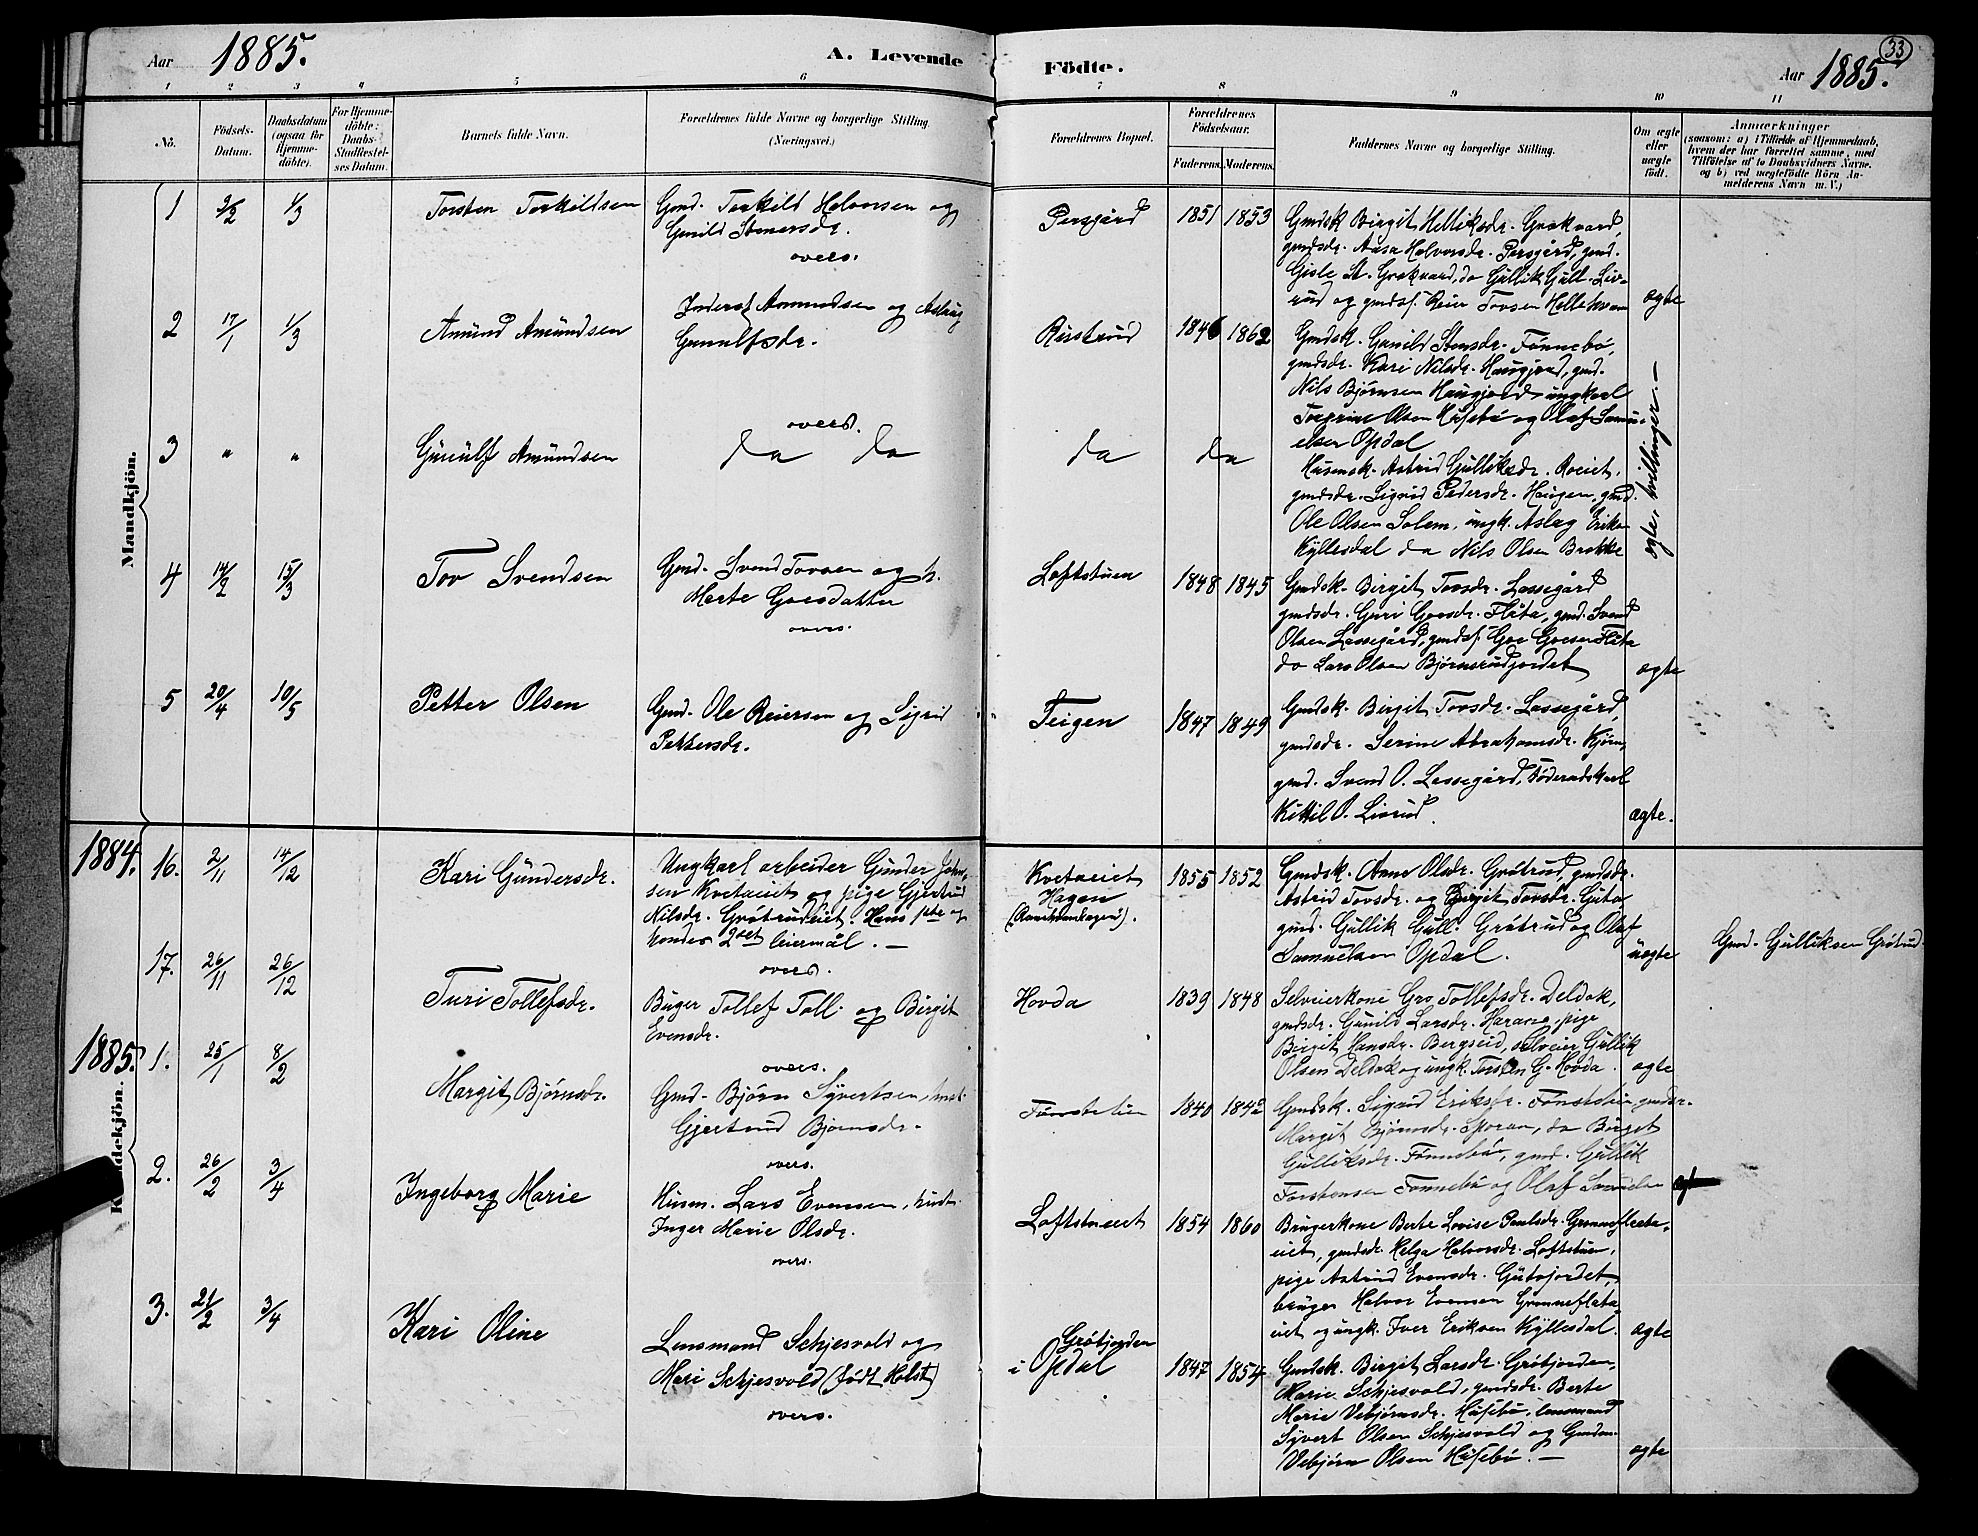 Aar 1885.
A. Levende
Födte.
Aar 1885.
33
1 2 3 4 5 6 7 8 9 10 11
No.
Födsels-Datum.
Daabsdatum (ogsaa for Hjemme-döbte).
For Hjemme-döbte: Daabs-Stadfæstel-ses Datum.
Barnets fulde Navn.
Forældrenes fulde Navne og borgerlige Stilling. (Næringsvei.)
Forældrenes Bopæl.
Forældrenes Födselsaar.
Faderens. Moderens.
Faddernes Navne og borgerlige Stilling.
Om ægte eller uægte födt.
Anmærkninger
(saasom: a) i Tilfælde af Hjemmedaab, hvem der har forrettet samme, med Tilföielse af to Daabsvidners Navne, og b) ved uægtefödte Börn An-melderens Navn m. V.)
Mandkjön.
1 2/2 1/3 Torsten Torkildsen
Gmd. Torkild Halvorsen og
Gunild Stenersdr.
overs.
Persgård 1851 1853
Gmdsk. Birgit Helliksdr. Grøkvard,
gmdsdr. Aasa Halvorsdr. Persgård, gmd.
Gisle St. Grøkvard, do Gullik Gull. Liv-
rud og gmds. Reier Tovsen Hellekvam
ægte
2 17/1 1/3 Amund Amundsen
Inderst Amundsen og Aslaug
Gunulfsdr.
overs.
Rustrud 1846 1862
Gmdsk. Gunild Stensdr. Fønnebø,
gmdsdr. Kari Nilsdr. Haugjord, gmd.
Nils Bjørnsen Haugjord, ungkarl
Torgrim Olsen Husebø og Olaf Samu-
elsen Opdal
3 " " Gunulf Amundsen
da da
da da
Husmsk. Astrid Gulliksdr. Roeiet,
gmdsdr. Sigrid Pedersdr. Haugen, gmd.
Ole Olsen Solem, ungk. Aslag Eriks.
Kyllesdal da Nils Olsen Brokke
ægte, tvillinger. —
4 14/2 15/3 Tov Svendsen
Gmd. Svend Tovsen og h.
Marte Goesdatter
overs.
Loftstuen 1848 1845
Gmdsk. Birgit Tovsdr. Lassegård
gmdsdr. Guri Goesdr. Flåta, gmd. Svend
Olsen Lassegård, gmds. Goe Goesen Flåta
do Lars Olsen Bjørnsrudjordet
ægte
5 20/4 10/5 Petter Olsen
Gmd. Ole Reiersen og Sigrid
Pettersdr.
Teigen 1847 1849
Gmdsk. Birgit Tovsdr. Lassegård,
gmdsdr. Serine Abrahamsdr. Kjørn,
gmd. Svend O. Lassegård, Føderadskarl
Kittil O. Livrud.
ægte.
Kvindekjön.
1884. 16. 2/11 14/12 Kari Gundersdr.
Ungkarl arbeider Gunder John-
sen Kvetaeiet og pige Gjertrud
Nilsdr. Grøtrudeiet. Hans 1ste og
hendes 2det leiermål. —
overs.
Kvetaeiet
Hagen
1855 1852
Gmdsk. Anne Olsdr. Grøtrud, gmdsdr.
Astrid Tovsdr. og Birgit Tovsdr. Guta
gmd. Gullik Gull. Grøtrud og Olaf
Samuelsen Opdal.
uægte
Gmd. Gulliksen Grøtrud
17. 26/11 26/12 Turi Tollefsdr.
Buger Tollef Toll. og Birgit
Evensdr.
overs.
Hovda 1839 1848
Selveierkone Gro Tollefsdr. Deldok,
gmdsdr. Gunild Larsdr. Harane, pige
Birgit Hansdr. Bergseid, selveier Gullik
Olsen Deldok og ungk. Torsten G. Hovda.
ægte
1885. 1. 25/1 8/2 Margit Bjørnsdr.
Gmd. Bjørn Syvertsen, hust.
Gjertrud Bjørnsdr.
overs.
Fønstelien 1840 1842
Gmdsk. Sigrid Eriksdr. Fønstelien, gmdsdr.
Margit Bjørnsdr. Sporan, da Birgit
Gulliksdr. Fønnebø, gmd. Gullik
Torstensen Fønnebø og Olaf Samuelsen
ægte
2. 26/2 3/4 Ingeborg Marie
Husm. Lars Evensen, hust.
Inger Marie Olsdr.
overs.
Loftstueeiet 1854 1860
Brugerkone Berte Lovise Paulsdr. Grønneflata-
eiet, gmdsdr. Helga Halvorsdr. Loftstuen,
pige Astrid Evensdr. Gutujordet,
bruger Halvor Evensen Grønneflata
eiet og ungk. Iver Eriksen Kyllesdal.
ægte
3. 21/2 3/4 Kari Oline
Lensmand Schjesvold og
Mari Schjesvold (født Holst)
overs.
Grøtjorden
i Opdal 1847 1854
Gmdsk. Birgit Larsdr. Grøtjorden,
Marie Schjesvold, gmdsdr. Berte
Marie Vebjørnsdr. Husebø, lensmand
Syvert Olsen Schjesvold og Gmdm.
Vebjørn Olsen Husebø. —
ægte